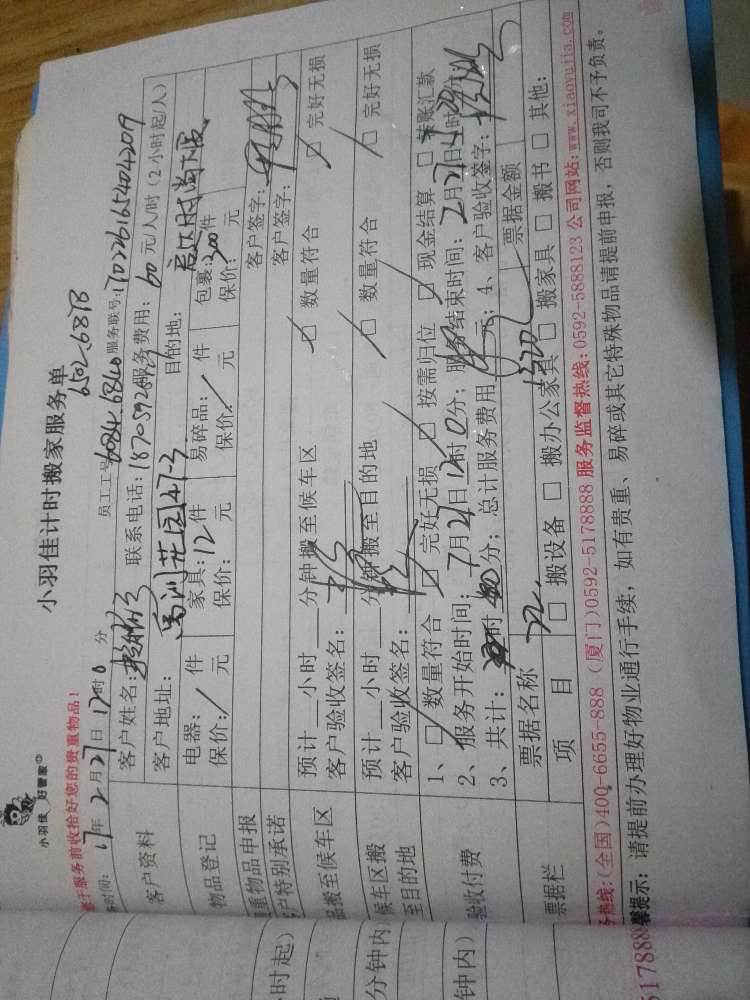 小羽佳 好管家
小羽佳计时搬家服务单
6502.6878
于服务前收拾好您的贵重物品!
时间: 17年2月27日12时0分
员工工号: 6084.6840 服务联号: 170226165404209
客户资料
客户姓名: 联系电话: 服务费用: 60 元/人/时 (2小时起/人)
客户地址: 花园47-3 目的地:
物品登记
电器: / 件 家具: 12件 易碎品: / 件 包裹: 200件
保价: / 元 保价: 元 保价: / 元 保价: 元
重物品申报 客户签字:
户特别承诺 客户签字:
品搬至候车区
预计__小时__分钟搬至候车区 □ 数量符合 □ 完好无损
客户验收签名:
候车区搬至目的地
预计__小时__分钟搬至目的地 □ 数量符合 □ 完好无损
客户验收签名:
验收付费
1、□ 数量符合 □ 完好无损 □ 按需归位 □ 现金结算 □ 转账汇款
2、服务开始时间: 月27日12时0分; 服务结束时间: 2月27日 时
3、共计: 时 分; 总计服务费用 元; 4、客户验收签字:
票据栏
票据名称 票据金额
项目 □ 搬设备 □ 搬办公家具 □ 搬家具 □ 搬书 □ 其他:
热线:(全国)400-6655-888 (厦门)0592-5178888 服务监督热线:0592-5888123 公司网站:www.xiaoyujia.com
馨提示: 请提前办理好物业通行手续, 如有贵重、易碎或其它特殊物品请提前申报, 否则我司不予负责。
时起)
分钟内
钟内)
517888